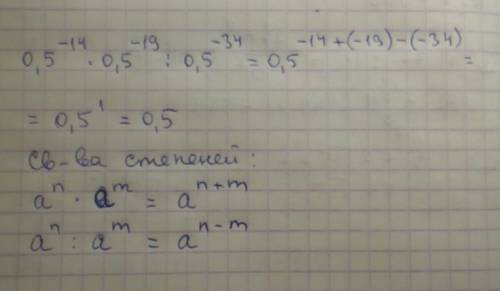 0,5⁻¹⁴ · 0,5⁻¹⁹ : 0,5⁻³⁴ = 0,5⁻¹⁴⁺⁽⁻¹⁹⁾⁻⁽⁻³⁴⁾ =
= 0,5¹ = 0,5
Св-ва степеней:
aⁿ · aᵐ = aⁿ⁺ᵐ
aⁿ : aᵐ = aⁿ⁻ᵐ